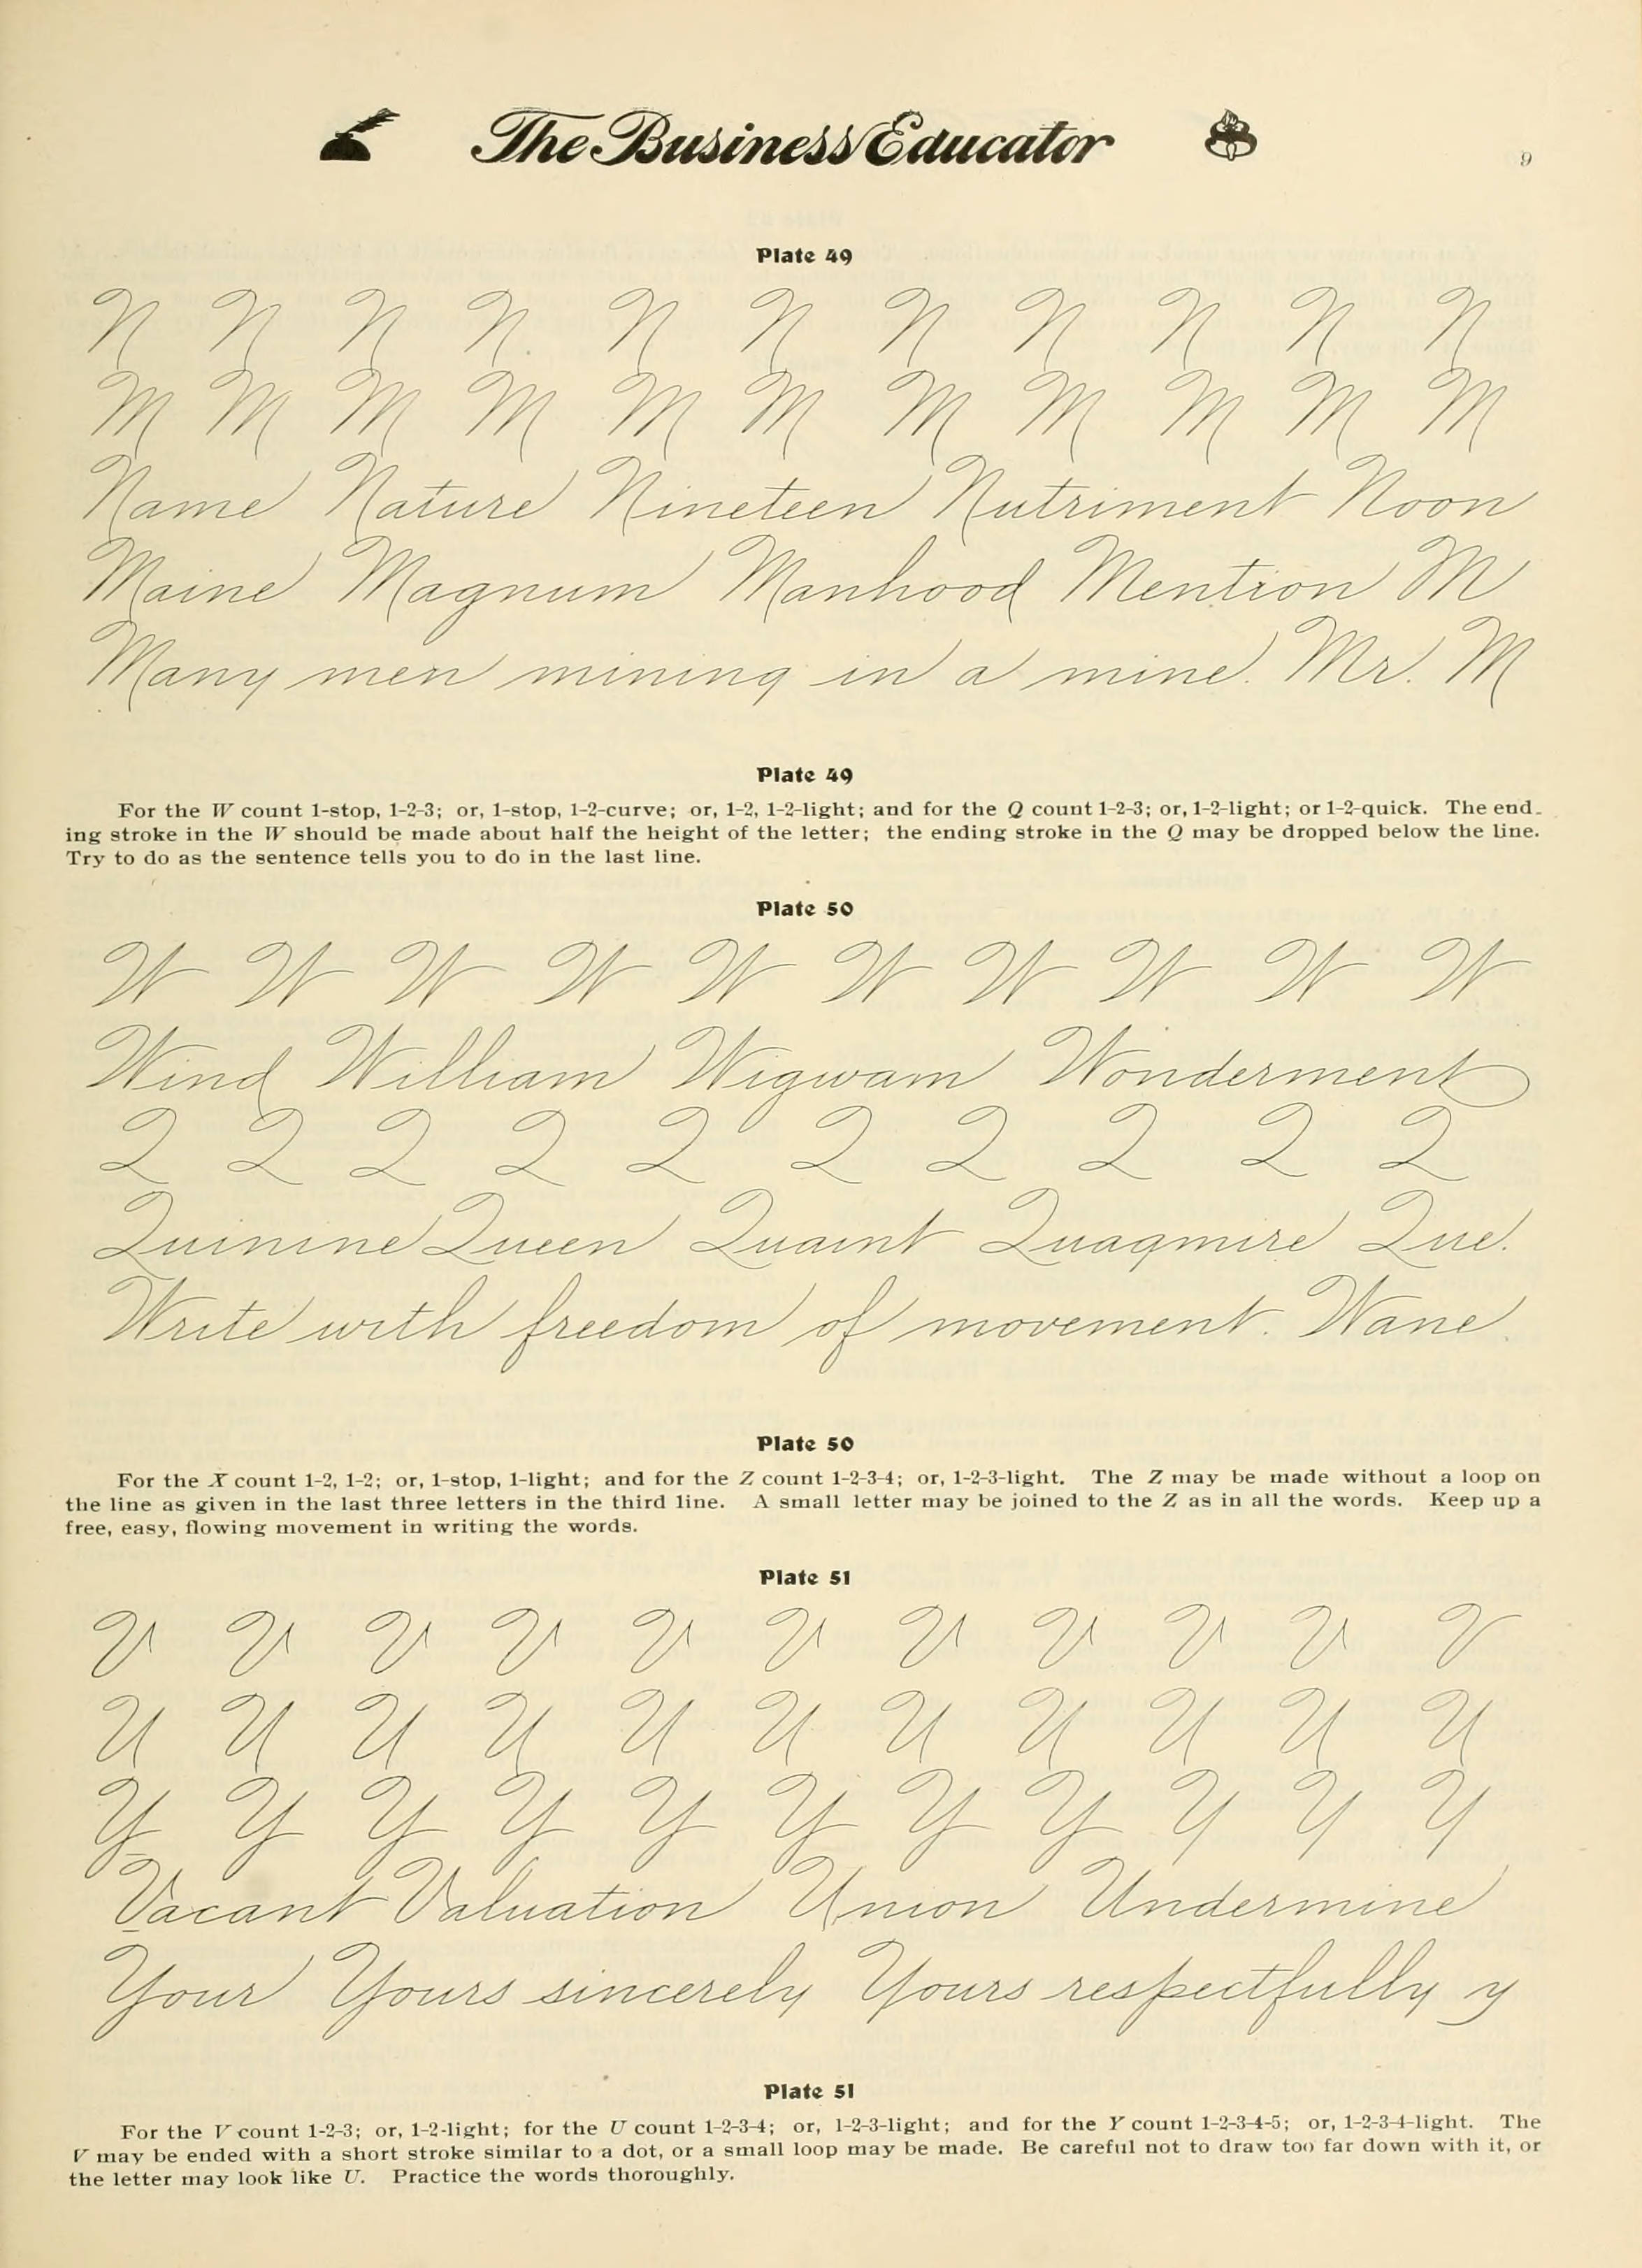 The Business Educator
9
Plate 49
N N N N N N N N N N N
M M M M M M M M M M M
Name Nature Nineteen Nutriment Noon
Maine Magnum Manhood Mention M
Many men mining in a mine. Mr. M
Plate 49
For the W count 1-stop, 1-2-3; or, 1-stop, 1-2-curve; or, 1-2, 1-2-light; and for the Q count 1-2-3; or, 1-2-light; or 1-2-quick. The end-
ing stroke in the W should be made about half the height of the letter; the ending stroke in the Q may be dropped below the line.
Try to do as the sentence tells you to do in the last line.
Plate 50
W W W W W W W W W W
Wind William Wigwam Wonderment
Q Q Q Q Q Q Q Q Q Q
Quinine Queen Quaint Quagmire Que.
Write with freedom of movement. Wane
Plate 50
For the X count 1-2, 1-2; or, 1-stop, 1-light; and for the Z count 1-2-3-4; or, 1-2-3-light. The Z may be made without a loop on
the line as given in the last three letters in the third line. A small letter may be joined to the Z as in all the words. Keep up a
free, easy, flowing movement in writing the words.
Plate 51
V V V V V V V V V V V
U U U U U U U U U U U
Y Y Y Y Y Y Y Y Y Y Y
Vacant Valuation Union Undermine
Your Yours sincerely Yours respectfully y
Plate 51
For the V count 1-2-3; or, 1-2-light; for the U count 1-2-3-4; or, 1-2-3-light; and for the Y count 1-2-3-4-5; or, 1-2-3-4-light. The
V may be ended with a short stroke similar to a dot, or a small loop may be made. Be careful not to draw too far down with it, or
the letter may look like U. Practice the words thoroughly.